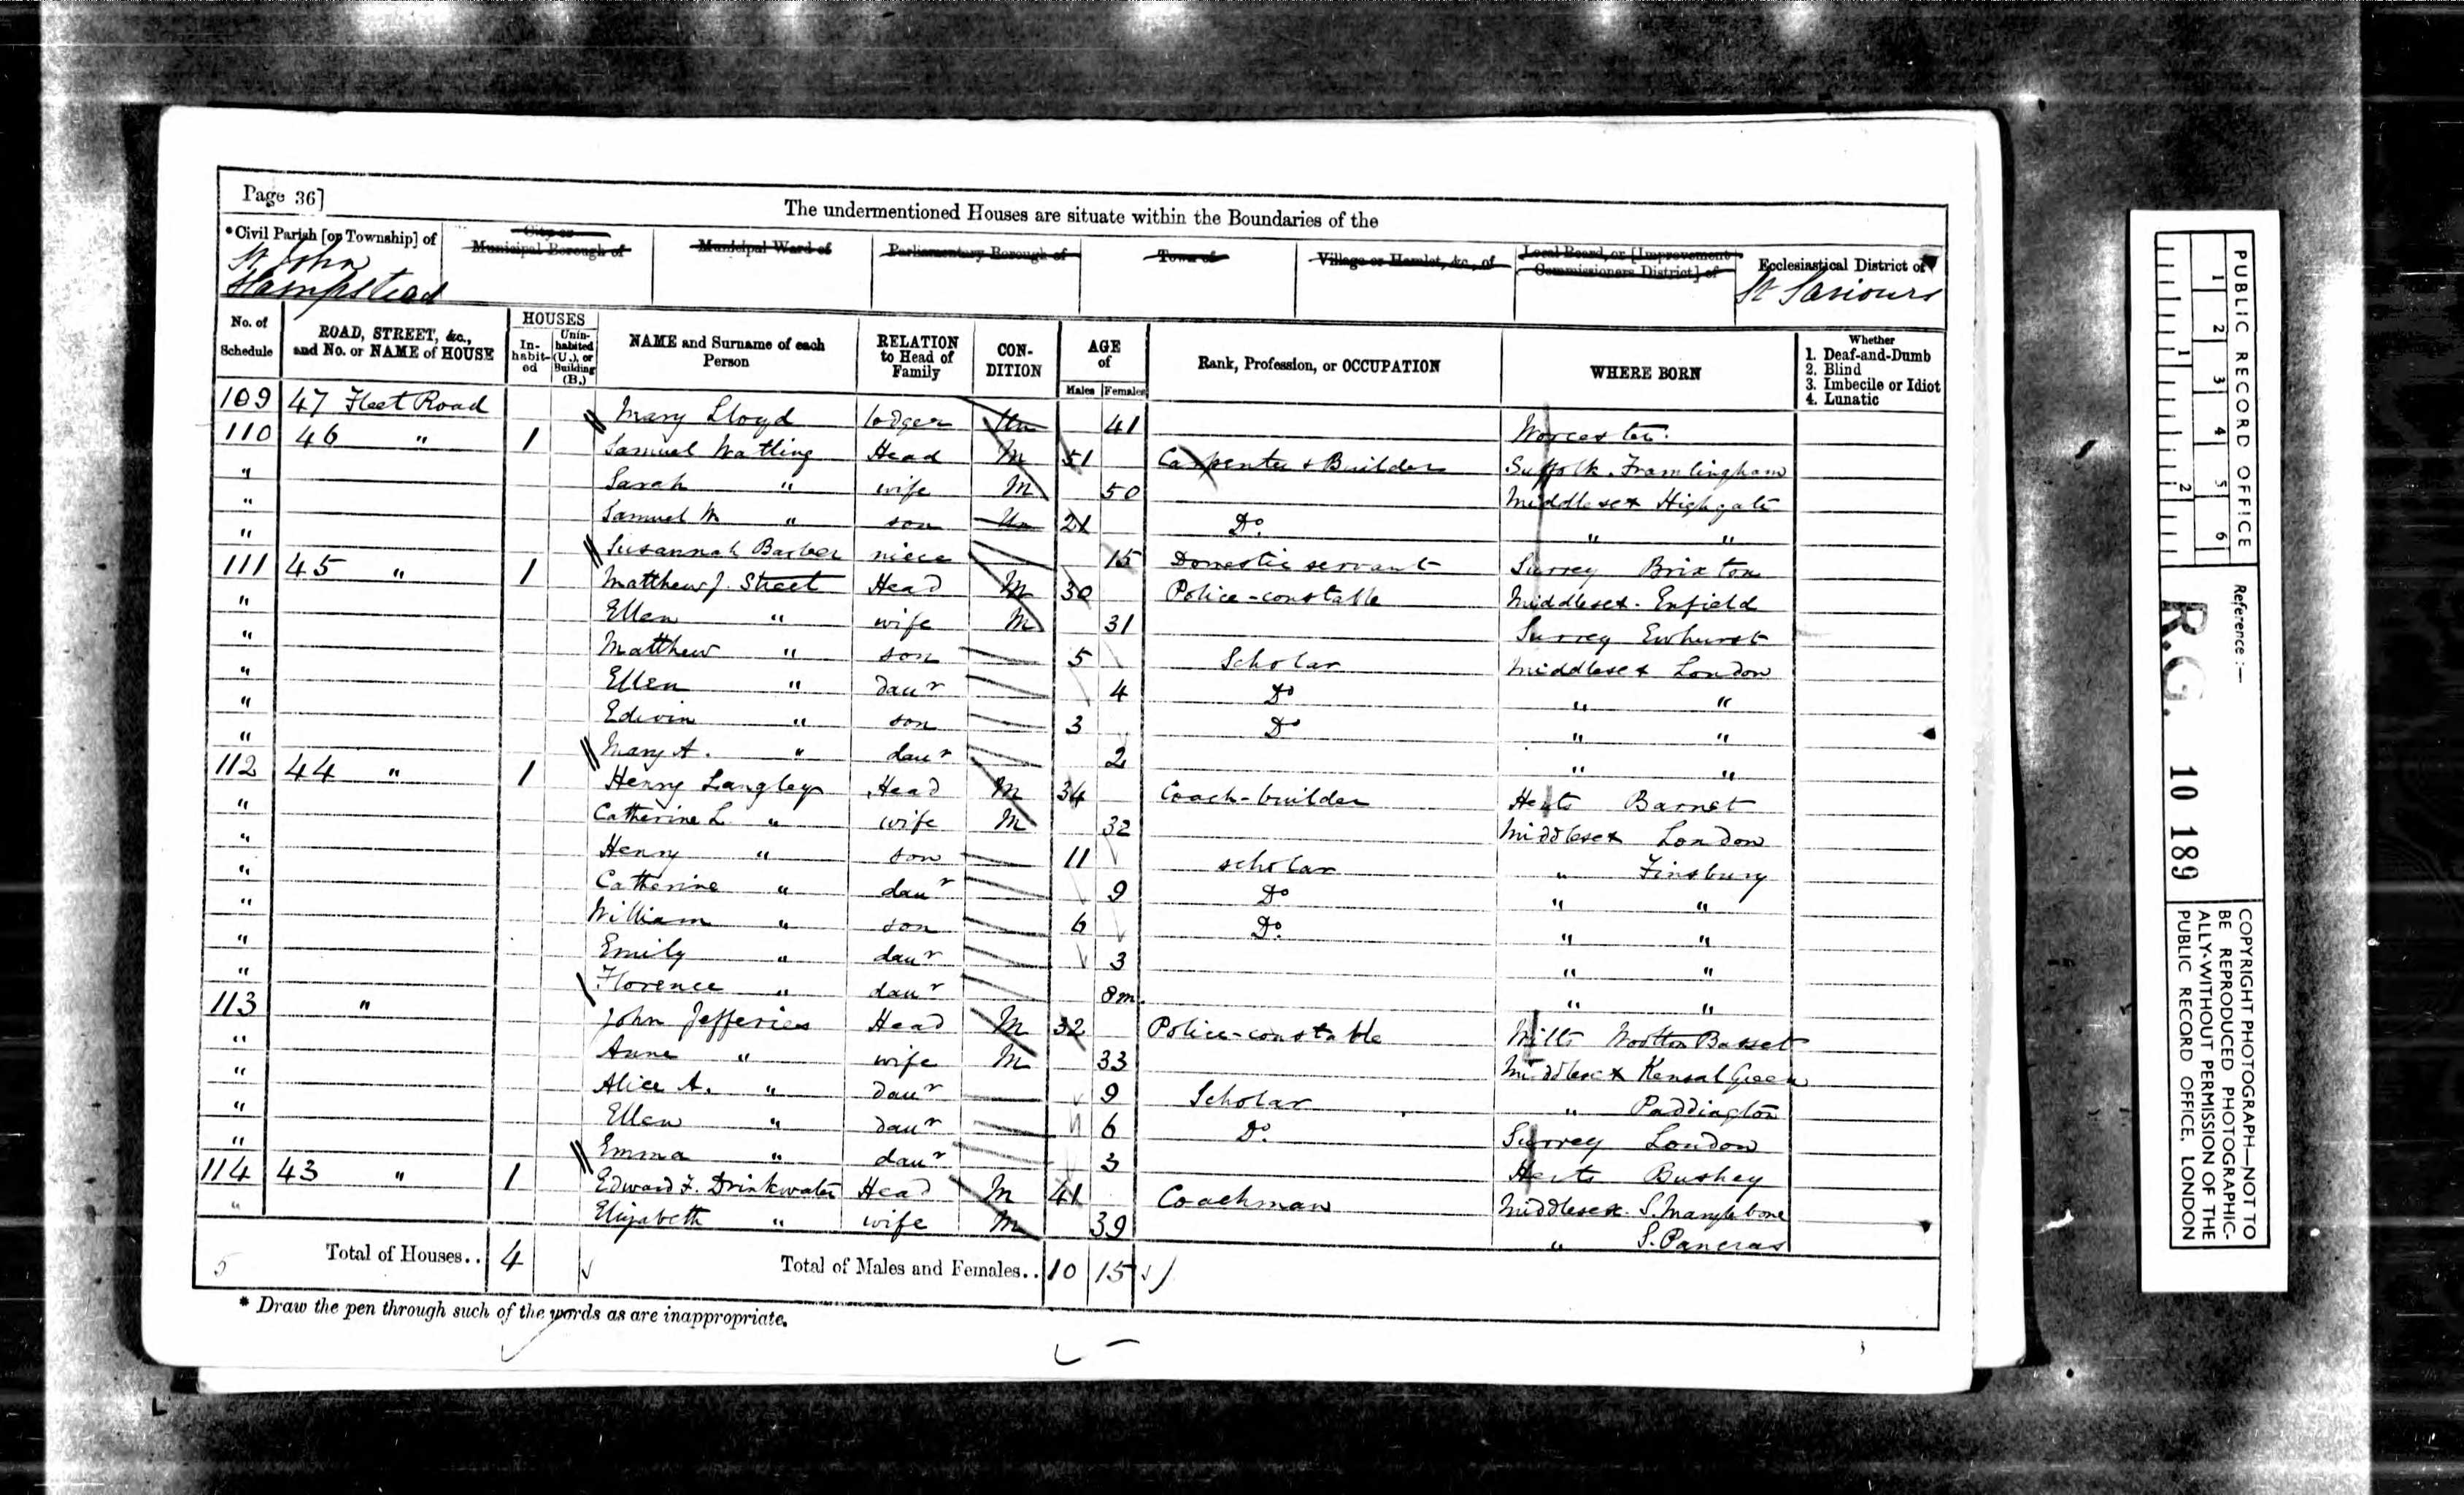 Page 36]
The undermentioned Houses are situate within the Boundaries of the
*Civil Parish [or Township] of City or Municipal Borough of Municipal Ward of Parliamentary Borough of Town of Village or Hamlet, &c., of Local Board, or [Improvement Commissioners District] of Ecclesiastical District of
St John Hampstead St Saviours
No. of Schedule ROAD, STREET, &c., and No. or NAME of HOUSE HOUSES In-habit-ed Unin-habited (U.), or Building (B.) NAME and Surname of each Person RELATION to Head of Family CON-DITION AGE of Males Females Rank, Profession, or OCCUPATION WHERE BORN Whether 1. Deaf-and-Dumb 2. Blind 3. Imbecile or Idiot 4. Lunatic
109 47 Fleet Road Mary Lloyd lodger Un 41 Worcester.
110 46 " 1 Samuel Watling Head M 51 Carpenter & Builder Suffolk. Framlingham
" Sarah " wife M 50 Middlesex Highgate
" Samuel W " son Un 21 Do. " "
" Susannah Barber niece 15 Domestic servant Surrey Brixton
111 45 " 1 Matthew J. Street Head M 30 Police-constable Middlesex. Enfield
" Ellen " wife M 31 Surrey Ewhurst
" Matthew " son 5 Scholar Middlesex London
" Ellen " daur 4 Do " "
" Edwin " son 3 Do " "
" Mary A. " daur 2 " "
112 44 " 1 Henry Langley Head M 34 Coach-builder Herts Barnet
" Catherine L. " wife M 32 Middlesex London
" Henry " son 11 scholar " Finsbury
" Catherine " daur 9 Do " "
" William " son 6 Do. " "
" Emily " daur 3 " "
" Florence " daur 8m. " "
113 " John Jefferies Head M 32 Police-constable Wilts Wootton Basset
" Anne " wife M 33 Middlesex Kensal Green
" Alice A. " daur 9 Scholar " Paddington
" Ellen " daur 6 Do. Surrey London
" Emma " daur 3 Herts Bushey
114 43 " 1 Edward F. Drinkwater Head M 41 Coachman Middlesex. S. Marylebone
" Elizabeth " wife M 39 " S. Pancras
5 Total of Houses.. 4 Total of Males and Females.. 10 15
* Draw the pen through such of the words as are inappropriate.
PUBLIC RECORD OFFICE
1 2 3 4 5 6
1 2
Reference :—
R.G. 10 189
COPYRIGHT PHOTOGRAPH—NOT TO
BE REPRODUCED PHOTOGRAPHIC-
ALLY WITHOUT PERMISSION OF THE
PUBLIC RECORD OFFICE, LONDON